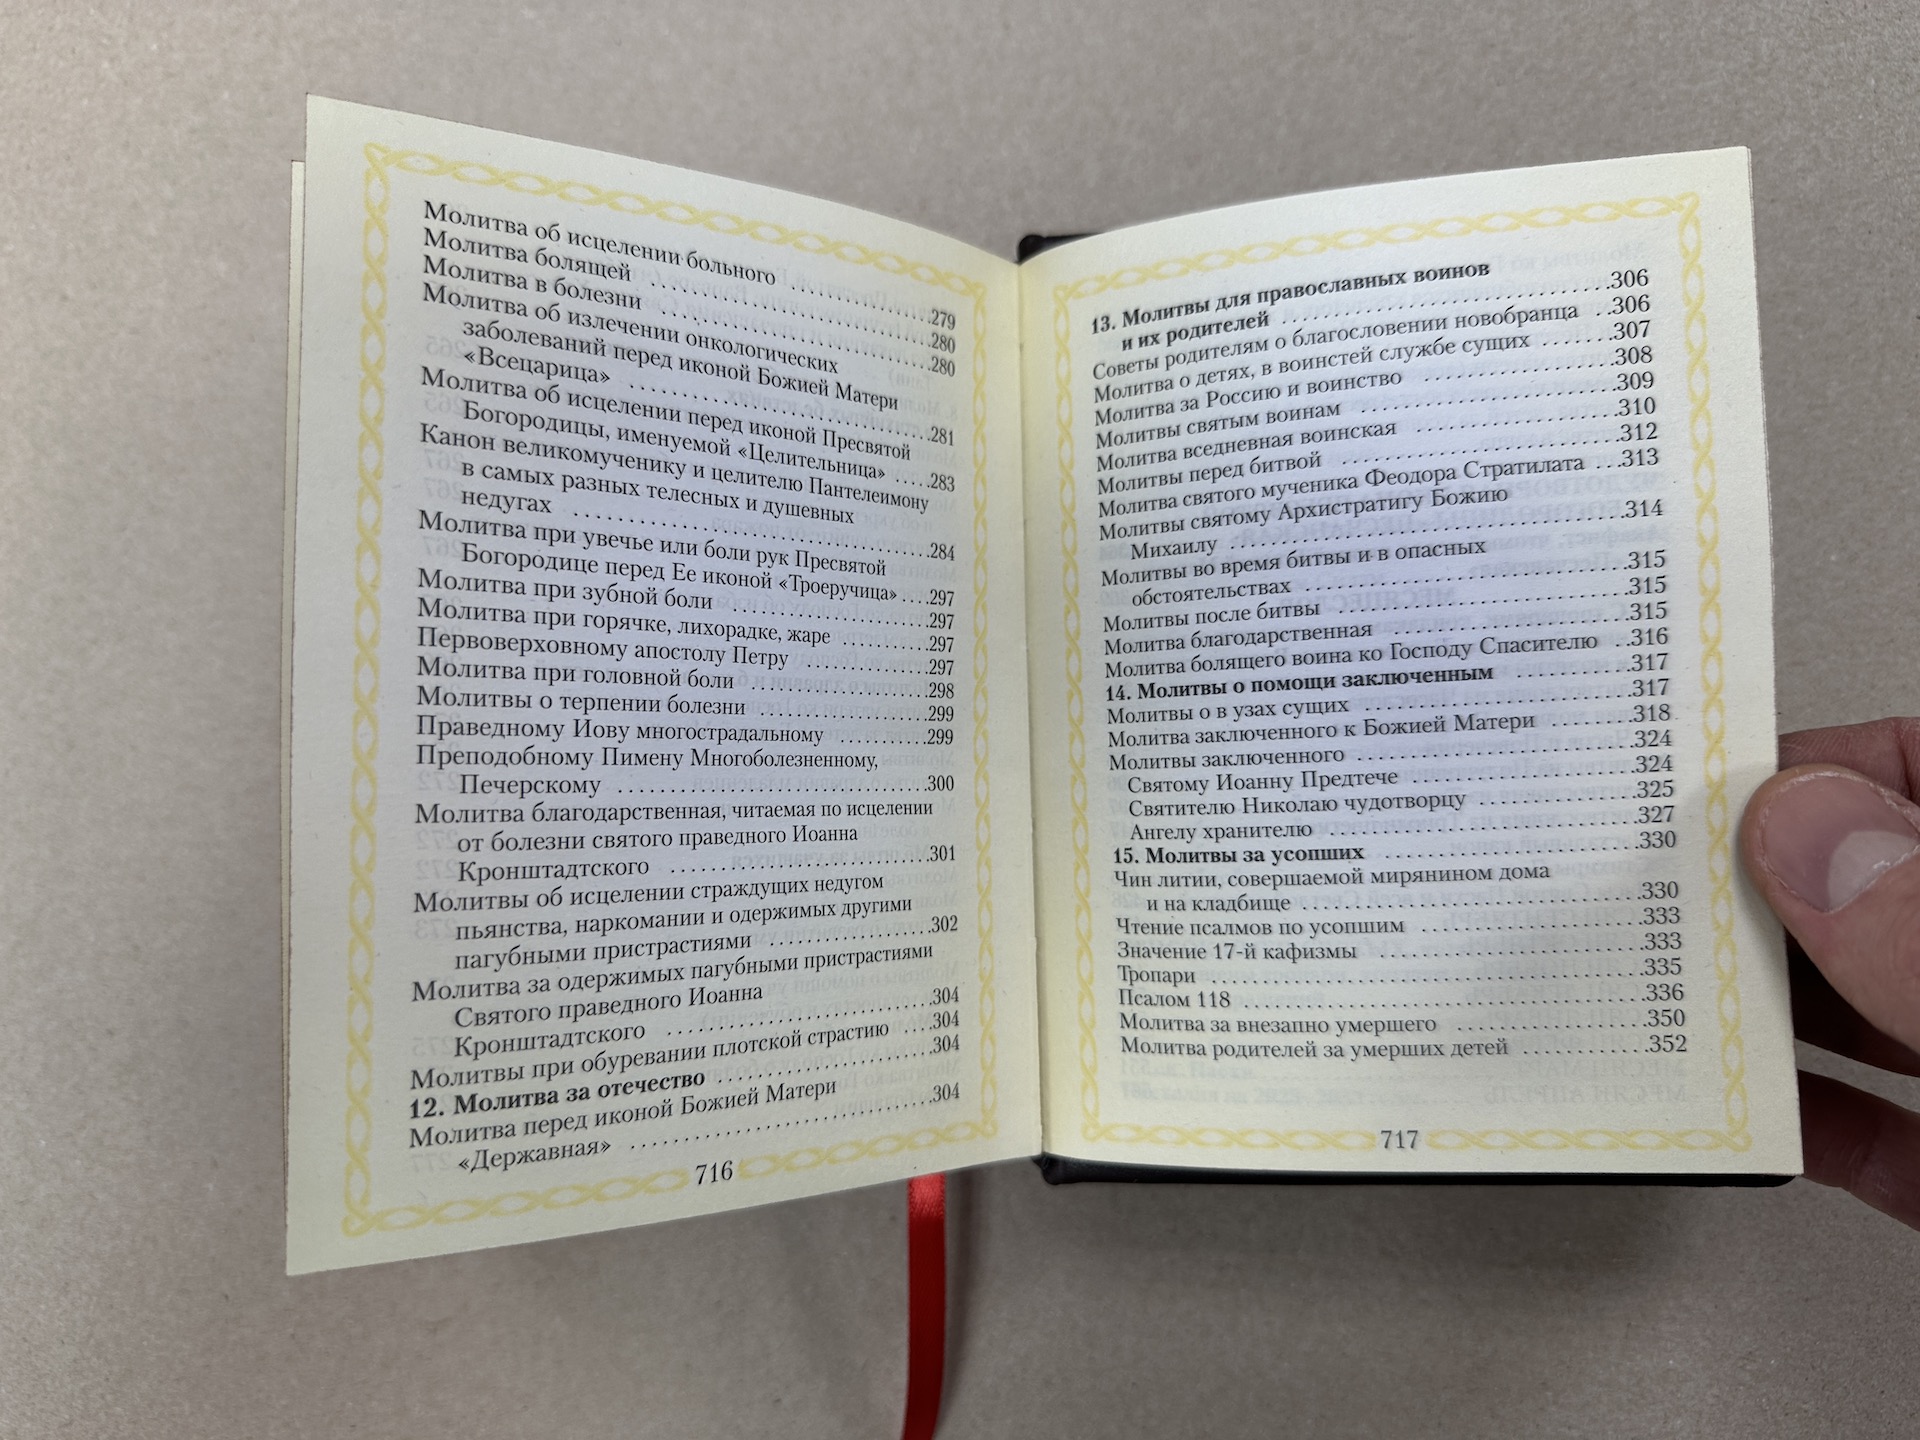 Молитва об исцелении больного ....................279
Молитва болящей ....................280
Молитва в болезни ....................280
Молитва об излечении онкологических
заболеваний перед иконой Божией Матери
«Всецарица» ....................281
Молитва об исцелении перед иконой Пресвятой
Богородицы, именуемой «Целительница» .....283
Канон великомученику и целителю Пантелеимону
в самых разных телесных и душевных
недугах ....................284
Молитва при увечье или боли рук Пресвятой
Богородице перед Ее иконой «Троеручица» ....297
Молитва при зубной боли ....................297
Молитва при горячке, лихорадке, жаре ...........297
Первоверховному апостолу Петру ...............297
Молитва при головной боли ....................298
Молитвы о терпении болезни ...................299
Праведному Иову многострадальному ...........299
Преподобному Пимену Многоболезненному,
Печерскому ....................300
Молитва благодарственная, читаемая по исцелении
от болезни святого праведного Иоанна
Кронштадтского ....................301
Молитвы об исцелении страждущих недугом
пьянства, наркомании и одержимых другими
пагубными пристрастиями ....................302
Молитва за одержимых пагубными пристрастиями
Святого праведного Иоанна
Кронштадтского ....................304
Молитвы при обуревании плотской страстию ....304
12. Молитва за отечество ....................304
Молитва перед иконой Божией Матери
«Державная» ....................304
716
13. Молитвы для православных воинов
и их родителей ....................306
Советы родителям о благословении новобранца ..306
Молитва о детях, в воинстей службе сущих .......307
Молитва за Россию и воинство ....................308
Молитвы святым воинам ....................309
Молитва вседневная воинская ....................310
Молитвы перед битвой ....................312
Молитва святого мученика Феодора Стратилата ...313
Молитвы святому Архистратигу Божию
Михаилу ....................314
Молитвы во время битвы и в опасных
обстоятельствах ....................315
Молитвы после битвы ....................315
Молитва благодарственная ....................315
Молитва болящего воина ко Господу Спасителю ..316
14. Молитвы о помощи заключенным ............317
Молитвы о в узах сущих ....................317
Молитва заключенного к Божией Матери ........318
Молитвы заключенного ....................324
Святому Иоанну Предтече ....................324
Святителю Николаю чудотворцу ...............325
Ангелу хранителю ....................327
15. Молитвы за усопших ....................330
Чин литии, совершаемой мирянином дома
и на кладбище ....................330
Чтение псалмов по усопшим ....................333
Значение 17-й кафизмы ....................333
Тропари ....................335
Псалом 118 ....................336
Молитва за внезапно умершего ....................350
Молитва родителей за умерших детей ............352
717